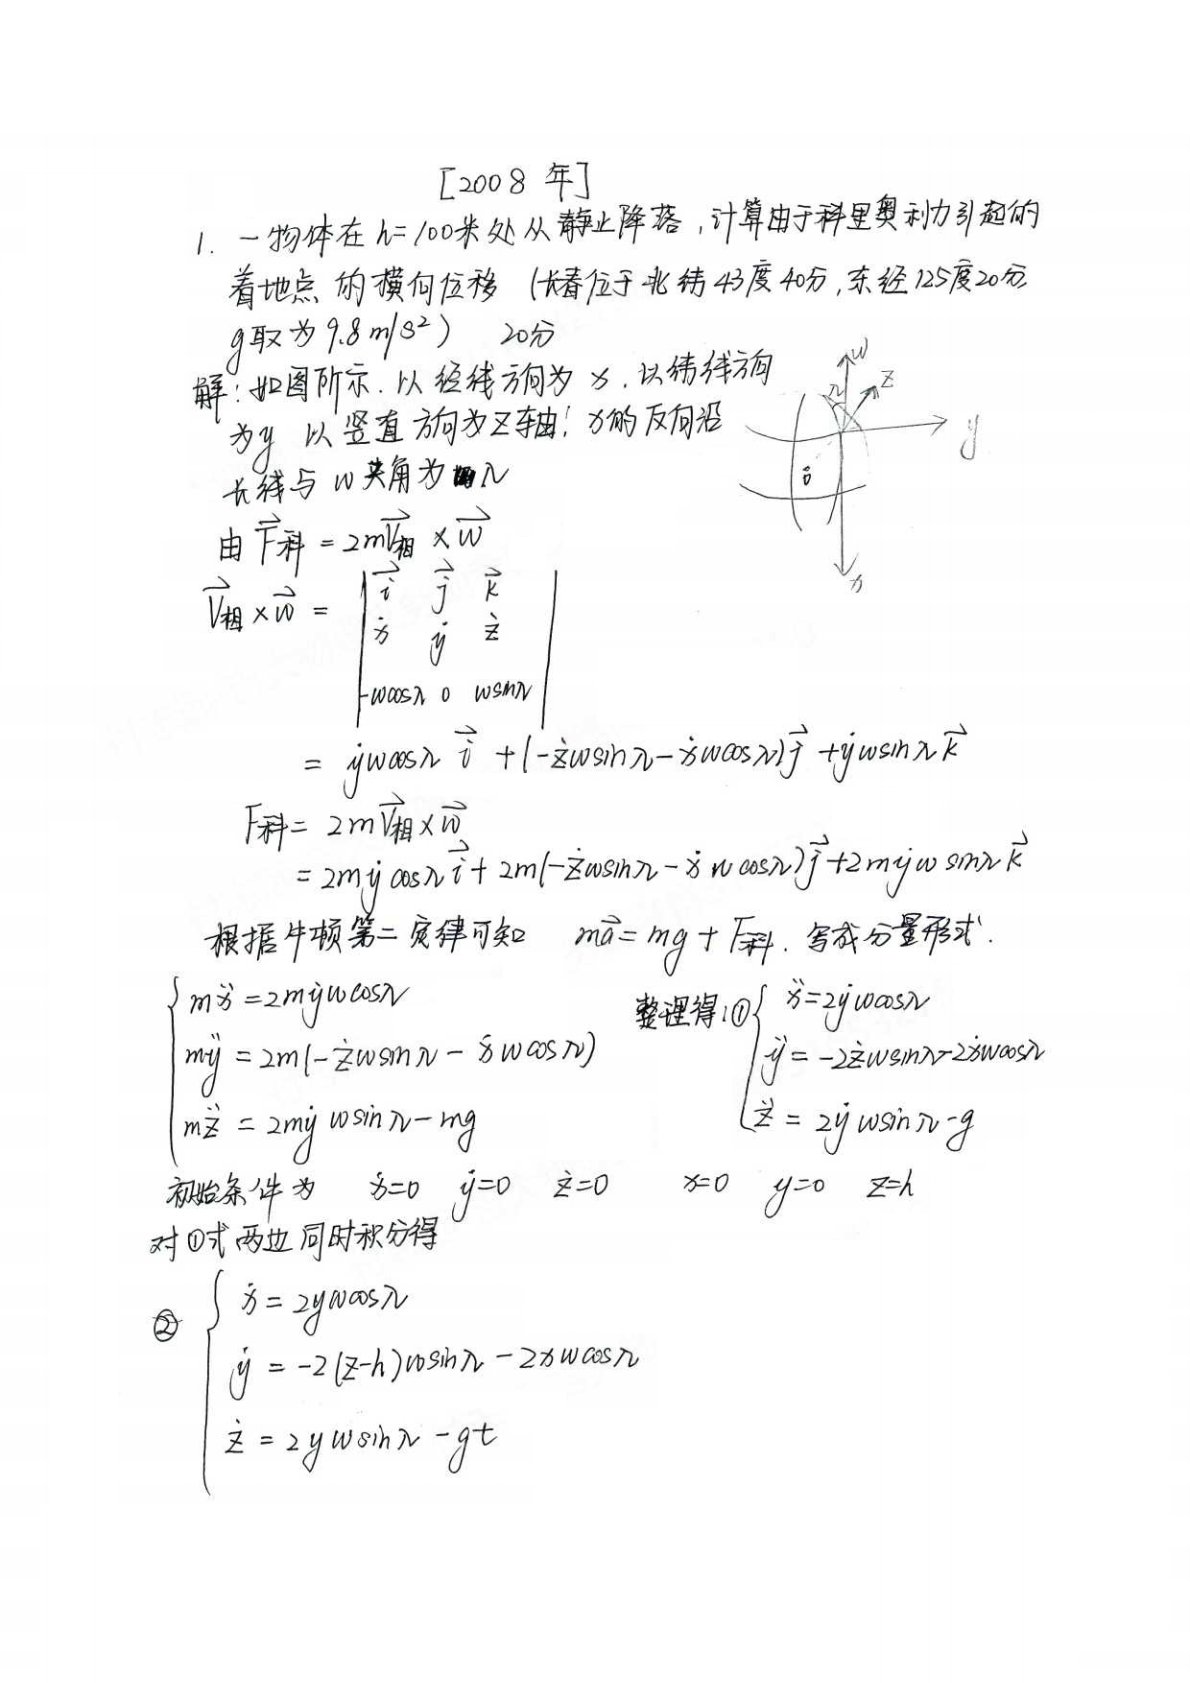 [2008 年]
1. 一物体在 h=100米处从静止降落,计算由于科里奥利力引起的
着地点 的横向位移 (长春位于北纬43度40分,东经125度20分
g取为9.8m/s²) 20分
解:如图所示.以经线方向为 x.以纬线方向
为y 以竖直方向为Z轴! x的反向沿
长线与 w夹角为 λ
w
z
λ
y
x
由 F⃗科 = 2mV⃗相 × w⃗
V⃗相 × w⃗ = | i⃗ j⃗ k⃗
ẋ ẏ ż
-wcosλ 0 wsinλ |
= ẏwcosλ i⃗ + (-żwsinλ - ẋwcosλ) j⃗ + ẏwsinλ k⃗
F科 = 2mV⃗相 × w⃗
= 2mẏ cosλ i⃗ + 2m(-żwsinλ - ẋ w cosλ) j⃗ + 2mẏw sinλ k⃗
根据牛顿第二定律可知 ma⃗ = mg + F科. 写成分量形式.
mẍ = 2mẏwcosλ 整理得:① ẍ = 2ẏwcosλ
mÿ = 2m(-żwsinλ - ẋwcosλ) ÿ = -2żwsinλ - 2ẋwcosλ
mz̈ = 2mẏ wsinλ - mg z̈ = 2ẏ wsinλ - g
初始条件为 ẋ=0 ẏ=0 ż=0 x=0 y=0 z=h
对①式两边同时积分得
② ẋ = 2ywcosλ
ẏ = -2(z-h)wsinλ - 2xwcosλ
ż = 2ywsinλ - gt